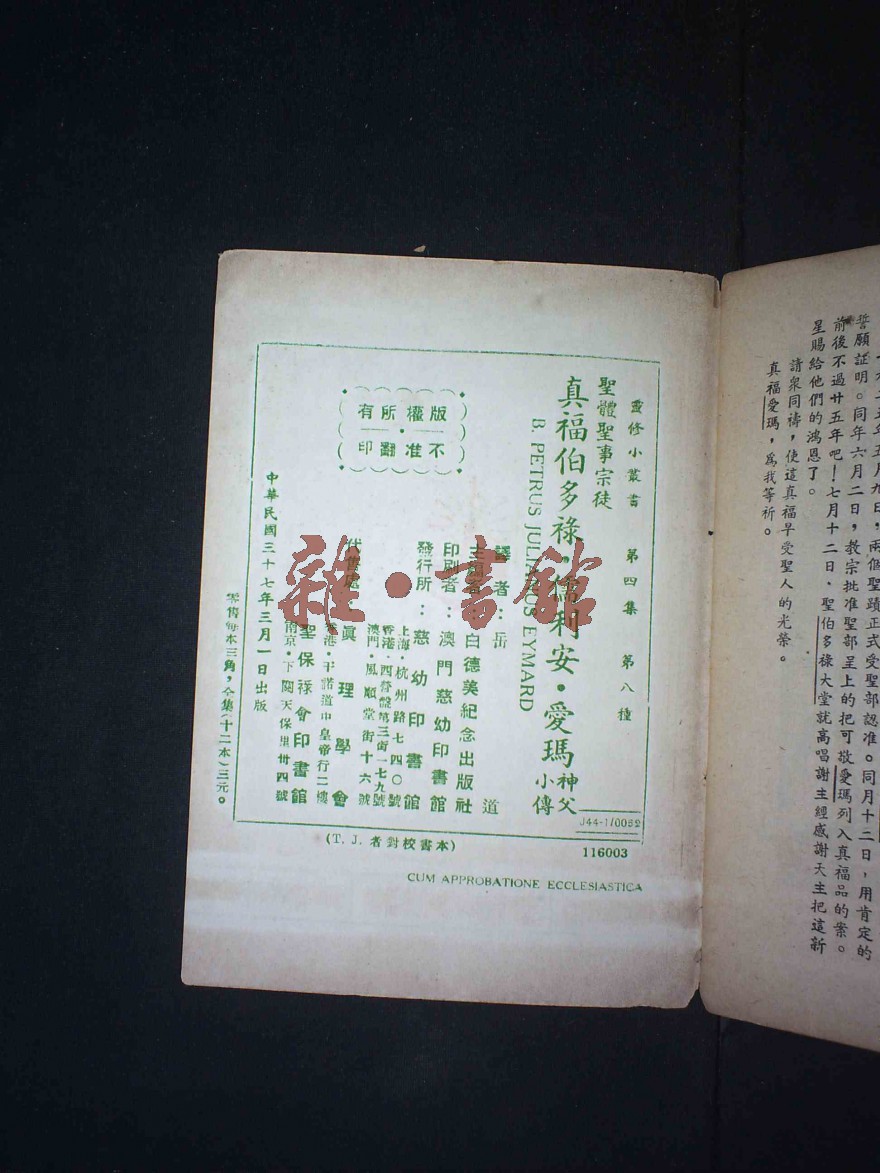 誓願証明。同年六月二日，教宗批准聖部呈上的把可敬愛瑪列入真福品的案。
前後不過廿五年吧！七月十二日，聖伯多祿大堂就高唱謝主經感謝天主把這新
星賜給他們的鴻恩了。
請衆同禱，使這真福早受聖人的光榮。
真福愛瑪，爲我等祈。
靈修小叢書 第四集 第八種
聖體聖事宗徒
真福伯多祿・儒利安・愛瑪神父小傳
B. PETRUS JULIANUS EYMARD
譯者：岳道
白德美紀念出版社
印刷者：澳門慈幼印書館
發行所：慈幼印書館
上海・杭州路七四〇號
香港・西營盤第三街一七九號
澳門・風順堂街十六號
代售處
真理學會
香港・干諾道中皇帝行二樓
聖保祿會印書館
南京・下關天保里卅四號
版權所有
不准翻印
中華民國三十七年三月一日出版
零售每本三角，全集（十二本）三元。
J44-1/0052
116003
(T. J. 者對校書本)
CUM APPROBATIONE ECCLESIASTICA
雜・書館